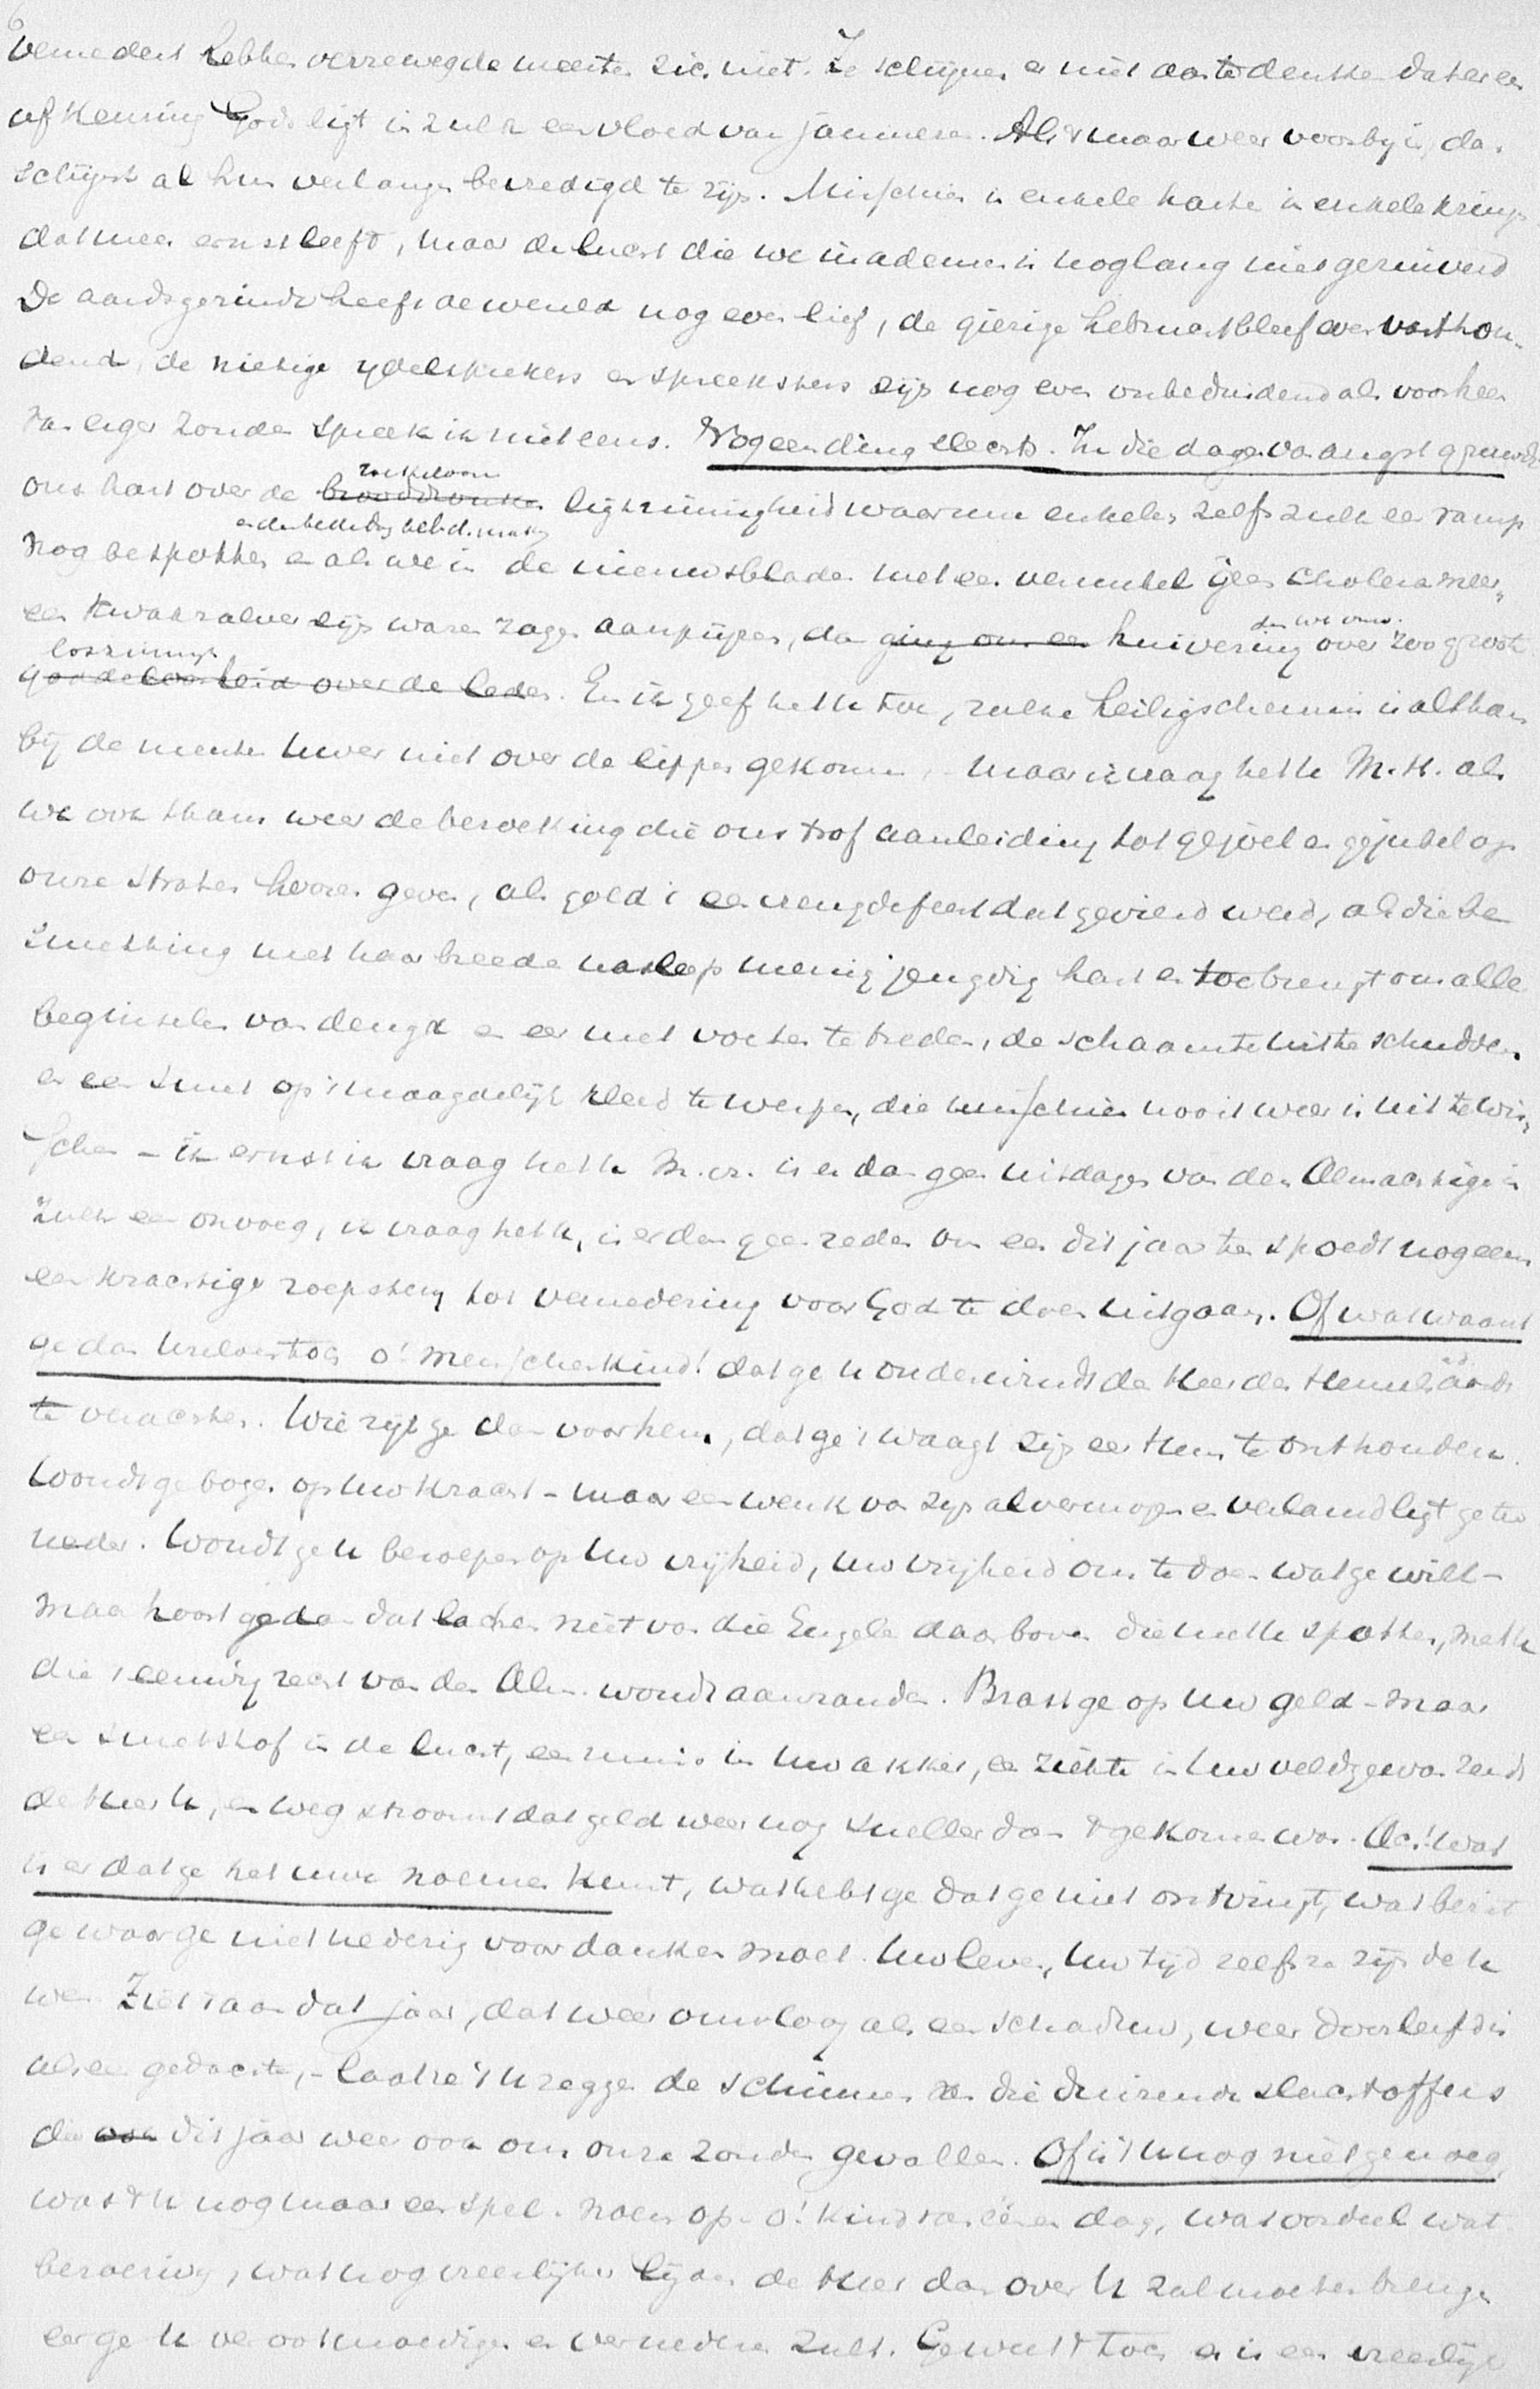 6
vernedert hebben verreweg de meesten zich niet. Ze schijnen er niet aan te denken dat er een
afkeuring Gods ligt in zulk een vloed van jammeren. Als 't maar weer voorbij is, dan
schijnt al hun verlangen bevredigd te zijn. Misschien in enkele harten in enkele kringen
dat meer ernst leeft, maar de lucht die we inademen is nog lang niet gezuiverd
De aardsgezinde heeft de wereld nog even lief, de gierige hebzucht bleef even vasthou-
dend, de nietige ijdelsprekers en spreeksters zijn nog even onbeduidend als voorheen
van eigen zonde spreek ik niet eens. Nog een ding slechts. In die dagen van angst gruwde
ons hart over de roekeloze lichtzinnigheid waarmee enkelen zelfs zulk een ramp
nog bespotten en als we in de nieuwsbladen met een vermetel geen cholera meer,
een kwakzalver zijn waren zagen aanprijzen, dan ging ons een huivering over zoo groote
loszinnigh.
goddeloosheid over de leden. En ik geef het U toe, zulke heiligschennis is althans
bij de meesten Uwer niet over de lippen gekomen, - maar ik vraag het U M.H. als
we ook thans weer de bezoeking die ons trof aanleiding tot gejoel en gejubel op
onze straten hooren geven, als gold 't een vreugdefeest dat gevierd werd, als die be
smetting met haar breede nasleep menig jeugdig hart er toe brengt om alle
beginselen van deugd en eer met voeten te treden, de schaamte uit te schudden
en een smet op 't maagdelijk kleed te werpen, die misschien nooit weer is uit te wis-
schen - in ernst ik vraag het U M.H. is er dan geen uitdagen van den Almachtige in
zulk een onvoeg, ik vraag het U, is er dan geen reden om eer dit jaar ten spoedt nog eens
een krachtige roepstem tot vernedering voor God te doen uitgaan. Of wat waant
ge dan Uwer toch o! menschenkind! dat ge U onderwindt den Heer des Hemels en aards
te verachten. Wie zijt ge dan voor hem, dat ge 't waagt zijn eer Hem te onthouden.
Woudt ge bogen op Uw kracht - maar een wenk van zijn alvermogen en verlamd ligt ge ter
neder. Woudt ge U beroepen op Uw vrijheid, Uw vrijheid om te doen wat ge wilt -
maar hoort ge dan dat lachen niet van die Engelen daarboven die met U spotten, met U
die 't eeuwig recht van den Alm. woudt aanranden. Brast ge op Uw geld - maar
een smetstof in de lucht, een in Uw akker, een ziekte in Uw veldgewas zendt
de Heer U, en weg stroomt dat geld weer nog sneller dan 't gekomen was. Ach! wat
is er dat ge het uwe noemen kunt, wat hebt ge dat ge niet ontvingt, wat bezit
ge waar ge niet nederig voor danken moet. Uw leven, Uw tijd zelfs ze zijn de U
we. Ziet 't aan dat jaar, dat weer omvloog als een schaduw, weer doorleefd is
als een gedachte, - laat ze 't U zeggen de schimmen die duizende slachtoffers
die ook dit jaar weer ook om onze zonden gevallen. Of is 't U nog niet genoeg
was 't U nog maar een spel. Noem op - o! kind van éénen dag, wat oordeel wat
beroering, wat nog vreeslijker lijden de Heer dan over U zal moeten brengen
eer ge U verootmoedigen en vernederen zult. Gewis 't toch er is een vreeslijk